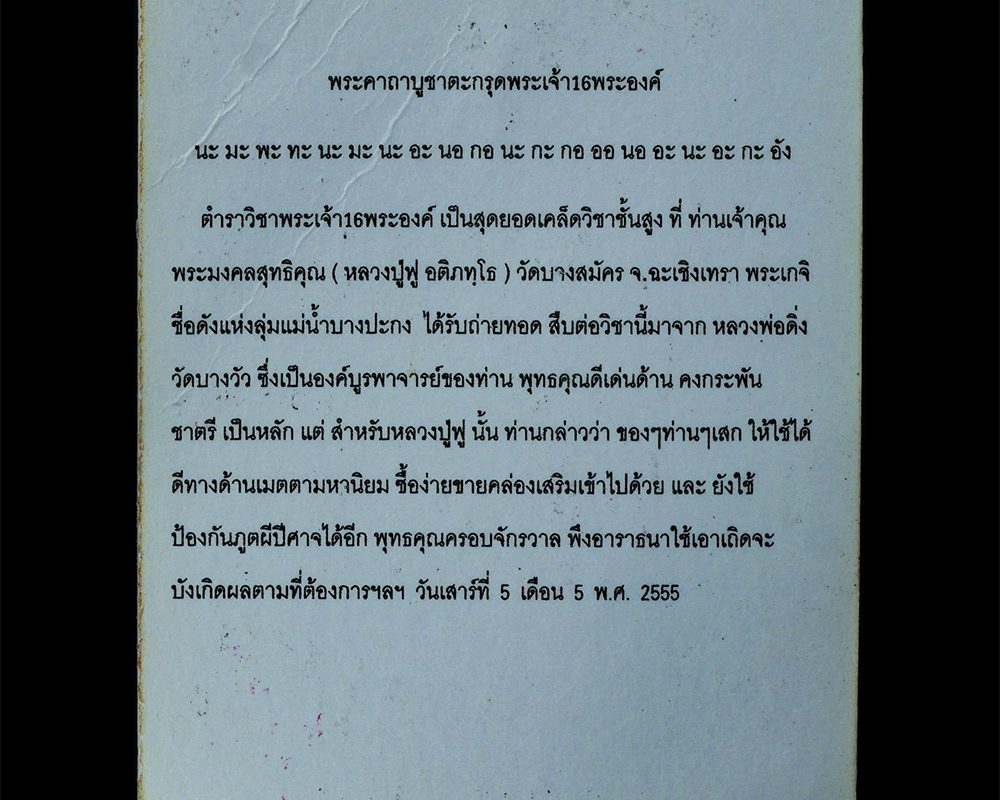 พระคาถาบูชาตะกรุดพระเจ้า16พระองค์
นะ มะ พะ ทะ นะ มะ นะ อะ นอ กอ นะ กะ กอ ออ นอ อะ นะ อะ กะ อัง
ตำราวิชาพระเจ้า16พระองค์ เป็นสุดยอดเคล็ดวิชาชั้นสูง ที่ ท่านเจ้าคุณ
พระมงคลสุทธิคุณ ( หลวงปู่ฟู อติภทฺโธ ) วัดบางสมัคร จ.ฉะเชิงเทรา พระเกจิ
ชื่อดังแห่งลุ่มแม่น้ำบางปะกง ได้รับถ่ายทอด สืบต่อวิชานี้มาจาก หลวงพ่อดิ่ง
วัดบางวัว ซึ่งเป็นองค์บูรพาจารย์ของท่าน พุทธคุณดีเด่นด้าน คงกระพัน
ชาตรี เป็นหลัก แต่ สำหรับหลวงปู่ฟู นั้น ท่านกล่าวว่า ของๆท่านๆเสก ให้ใช้ได้
ดีทางด้านเมตตามหานิยม ซื้อง่ายขายคล่องเสริมเข้าไปด้วย และ ยังใช้
ป้องกันภูตผีปีศาจได้อีก พุทธคุณครอบจักรวาล พึงอาราธนาใช้เอาเถิดจะ
บังเกิดผลตามที่ต้องการฯลฯ วันเสาร์ที่ 5 เดือน 5 พ.ศ. 2555